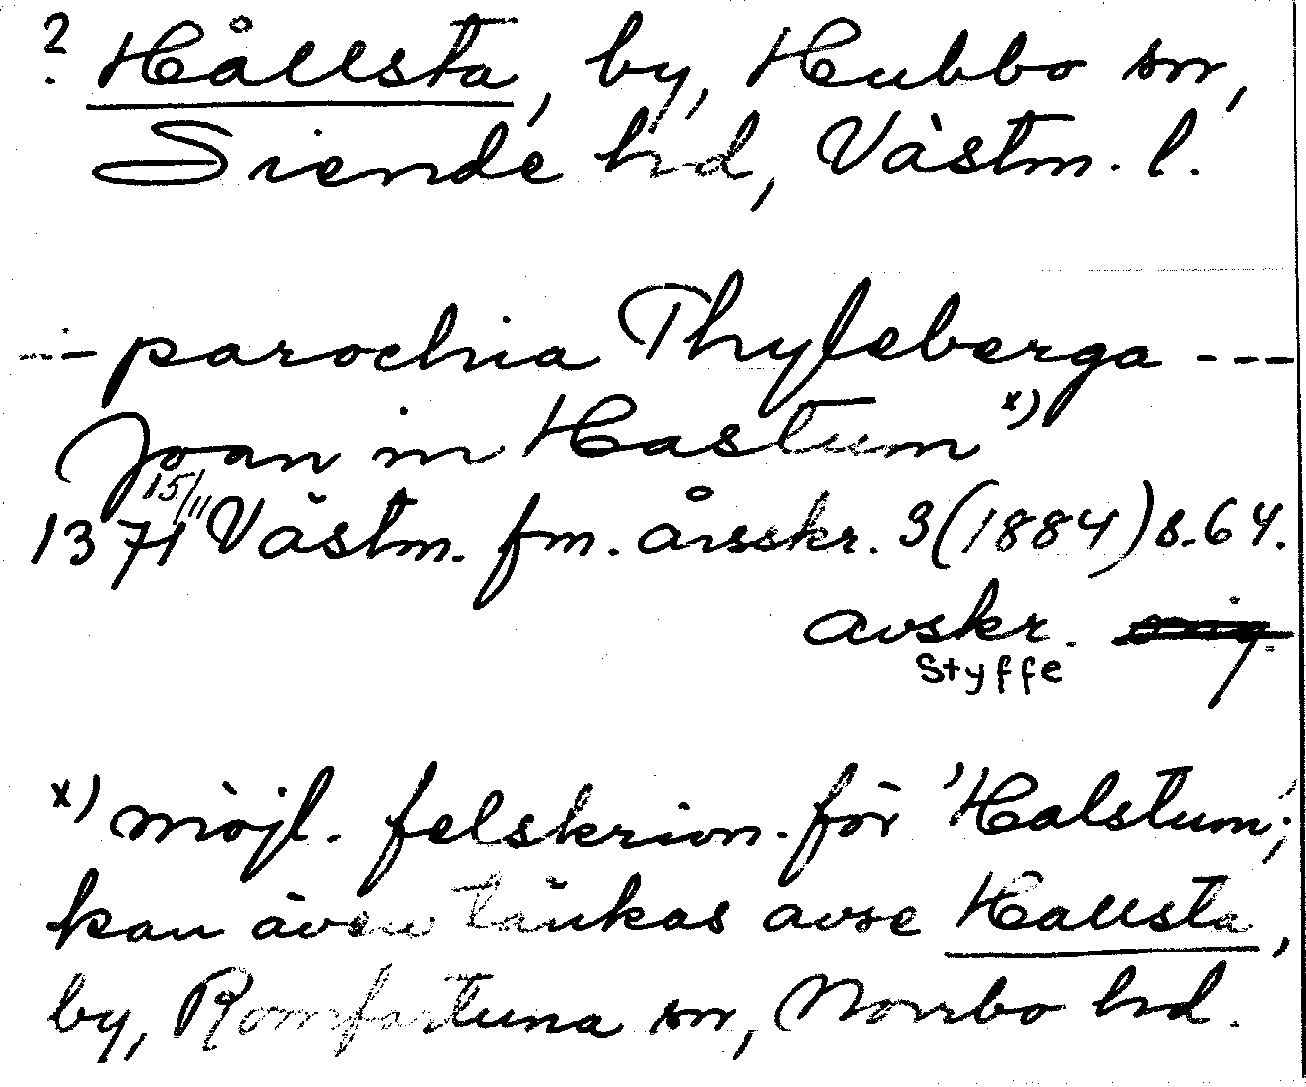 ? Hållsta, by, Hubbo sn,
Siende hd, Västm. l.
--- parochia Thyleberga ---
Joan in Hastum x)
1371 15/11 Västm. fm. årsskr. 3 (1884) s. 64.
avskr.
Styffe
x) möjl. felskrivn. för 'Halstum';
kan även tänkas avse Hallsta,
by, Romfartuna sn, Norrbo hd.